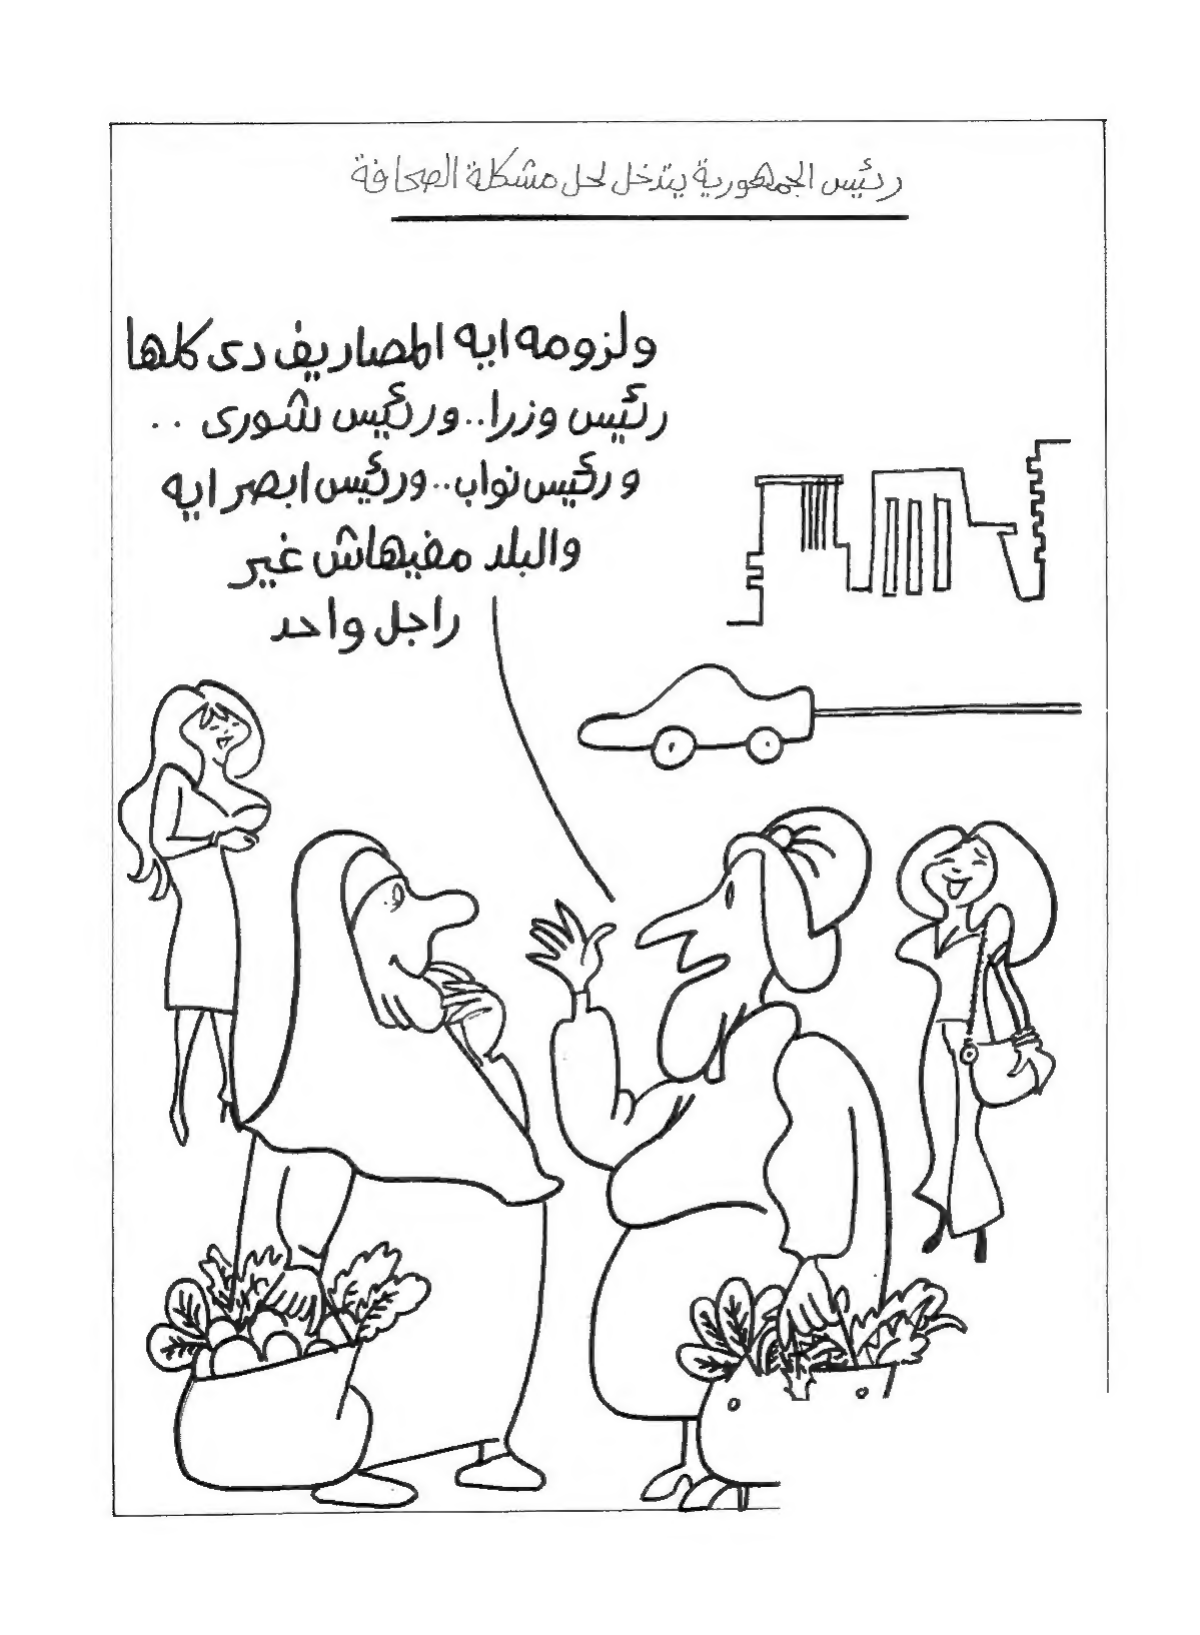 رئيس الجمهورية يتدخل لحل مشكلة الصحافة
ولزومه ايه المصاريف دى كلها
رئيس وزرا.. ورئيس شورى ..
ورئيس نواب.. ورئيس ابصر ايه
والبلد مفيهاش غير
راجل واحد